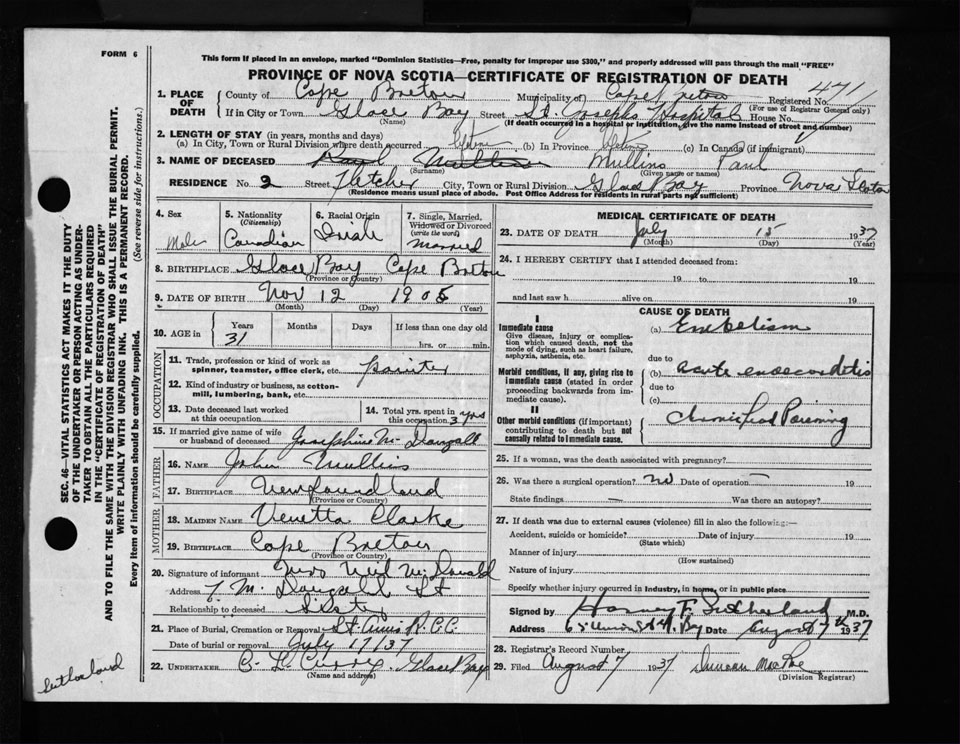 FORM 6
This form if placed in an envelope, marked "Dominion Statistics—Free, penalty for improper use $300," and properly addressed will pass through the mail "FREE"
PROVINCE OF NOVA SCOTIA—CERTIFICATE OF REGISTRATION OF DEATH
1. PLACE OF DEATH County of Cape Breton Municipality of Cape Breton Registered No. 471
(For use of Registrar General only)
If in City or Town Glace Bay Street St. Josephs Hospital House No.
(Name) (If death occurred in a hospital or institution, give the name instead of street and number)
2. LENGTH OF STAY (in years, months and days)
(a) In City, Town or Rural Division where death occurred lifetime (b) In Province (c) In Canada (if immigrant)
3. NAME OF DECEASED Mullins Paul
(Surname) (Given name or names)
RESIDENCE No. 2 Street Fletcher City, Town or Rural Division Glace Bay Province Nova Scotia
(Residence means usual place of abode. Post Office Address for residents in rural parts not sufficient)
4. Sex Male
5. Nationality (Citizenship) Canadian
6. Racial Origin Irish
7. Single, Married, Widowed or Divorced (write the word) Married
8. BIRTHPLACE Glace Bay Cape Breton
(Province or Country)
9. DATE OF BIRTH Nov 12 1905
(Month) (Day) (Year)
10. AGE in Years 31 Months Days If less than one day old
hrs. or min.
OCCUPATION
11. Trade, profession or kind of work as spinner, teamster, office clerk, etc. painter
12. Kind of industry or business, as cotton-mill, lumbering, bank, etc.
13. Date deceased last worked at this occupation
14. Total yrs. spent in this occupation 3 yrs
15. If married give name of wife or husband of deceased Josephine McDougall
FATHER
16. NAME John Mullins
17. BIRTHPLACE Newfoundland
(Province or Country)
MOTHER
18. MAIDEN NAME Venetta Clarke
19. BIRTHPLACE Cape Breton
(Province or Country)
20. Signature of informant Mrs Neil McDonald
Address 7 McDougall St
Relationship to deceased Sister
21. Place of Burial, Cremation or Removal St. Anns R.C.C.
Date of burial or removal July 17/37
22. UNDERTAKER Curry Glace Bay
(Name and address)
MEDICAL CERTIFICATE OF DEATH
23. DATE OF DEATH July 15 1937
(Month) (Day) (Year)
24. I HEREBY CERTIFY that I attended deceased from:
19 to 19
and last saw h alive on 19
CAUSE OF DEATH
I
Immediate cause (a) Embolism
Give disease, injury or complication which caused death, not the mode of dying, such as heart failure, asphyxia, asthenia, etc.
due to
Morbid conditions, if any, giving rise to immediate cause (stated in order proceeding backwards from immediate cause). (b) acute endocarditis
due to
(c)
II
Other morbid conditions (if important) contributing to death but not causally related to immediate cause. Poisoning
25. If a woman, was the death associated with pregnancy?
26. Was there a surgical operation? no Date of operation —
State findings — Was there an autopsy?
27. If death was due to external causes (violence) fill in also the following:—
Accident, suicide or homicide? Date of injury 19
(State which)
Manner of injury
(How sustained)
Nature of injury
Specify whether injury occurred in industry, in home, or in public place
Signed by Harvey F. Sutherland M.D.
Address 65 Union St Gl. Bay Date August 7th 1937
28. Registrar's Record Number
29. Filed August 7 1937 Duncan MacRae
(Division Registrar)
SEC. 46—VITAL STATISTICS ACT MAKES IT THE DUTY
OF THE UNDERTAKER OR PERSON ACTING AS UNDER-
TAKER TO OBTAIN ALL THE PARTICULARS REQUIRED
IN THE "CERTIFICATE OF REGISTRATION OF DEATH"
AND TO FILE THE SAME WITH THE DIVISION REGISTRAR WHO SHALL ISSUE THE BURIAL PERMIT.
WRITE PLAINLY WITH UNFADING INK. THIS IS A PERMANENT RECORD.
Every item of information should be carefully supplied. (See reverse side for instructions.)
Sutherland